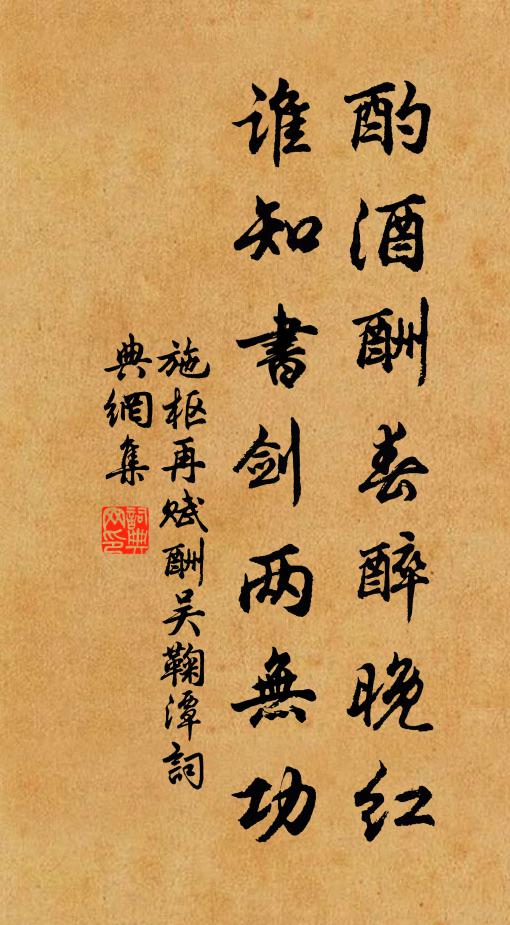 酌酒酬春醉晚红
谁知書剑两無功
施枢再赋酬吴鞠潭詞
典網集
詞典